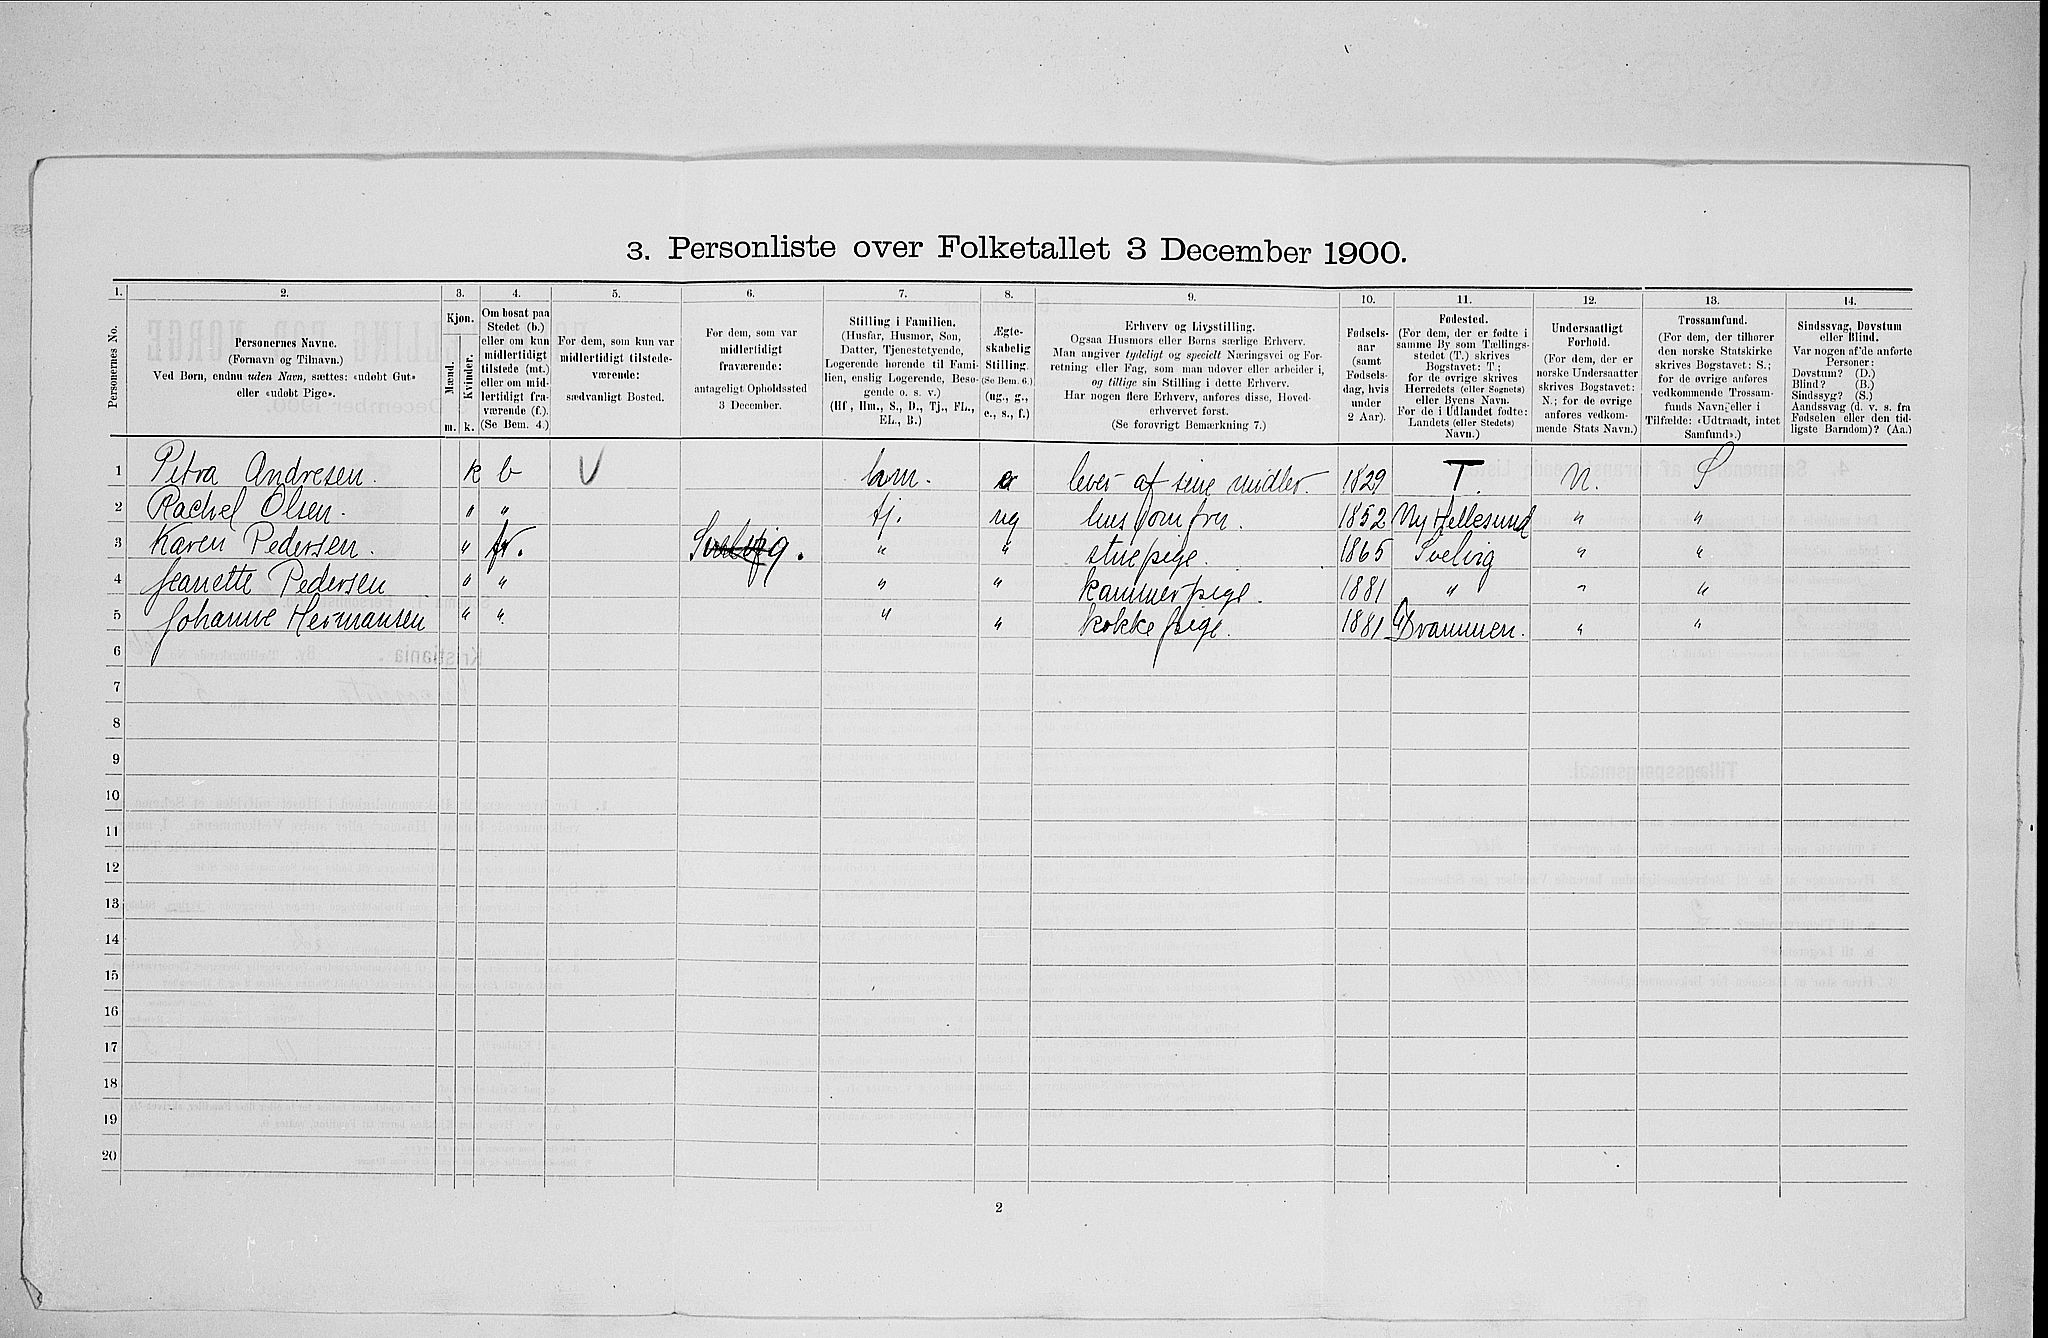 3. Personliste over Folketallet 3 December 1900.
1. 2. 3. 4. 5. 6. 7. 8. 9. 10. 11. 12. 13. 14.
Personernes No.
Personernes Navne.
(Fornavn og Tilnavn.)
Ved Børn, endnu uden Navn, sættes: «udøbt Gut»
eller «udøbt Pige».
Kjøn.
Mænd. Kvinder.
m. k.
Om bosat paa
Stedet (b.)
eller om kun
midlertidigt
tilstede (mt.)
eller om mid-
lertidigt fra-
værende (f.).
(Se Bem. 4.)
For dem, som kun var
midlertidigt tilstede-
værende:
sædvanligt Bosted.
For dem, som var
midlertidigt
fraværende:
antageligt Opholdssted
3 December.
Stilling i Familien.
(Husfar, Husmor, Søn,
Datter, Tjenestetyende,
Logerende hørende til Fami-
lien, enslig Logerende, Besø-
gende o. s. v.)
(Hf, Hm., S., D., Tj., FL.,
EL., B.)
Ægte-
skabelig
Stilling.
(Se Bem. 6.)
(ug., g.,
e., s., f.)
Erhverv og Livsstilling.
Ogsaa Husmors eller Børns særlige Erhverv.
Man angiver tydeligt og specielt Næringsvei og For-
retning eller Fag, som man udøver eller arbeider i,
og tillige sin Stilling i dette Erhverv.
Har nogen flere Erhverv, anføres disse, Hoved-
erhvervet først.
(Se forøvrigt Bemærkning 7.)
Fødsels-
aar
(samt
Fødsels-
dag, hvis
under
2 Aar).
Fødested.
(For dem, der er fødte i
samme By som Tællings-
stedet (T.) skrives
Bogstavet: T.;
for de øvrige skrives
Herredets (eller Sognets)
eller Byens Navn.
For de i Udlandet fødte:
Landets (eller Stedets)
Navn.)
Undersaatligt
Forhold.
(For dem, der er
norske Undersaatter
skrives Bogstavet:
N.; for de øvrige
anføres vedkom-
mende Stats Navn.)
Trossamfund.
(For dem, der tilhører
den norske Statskirke
skrives Bogstavet: S.;
for de øvrige anføres
vedkommende Trossam-
funds Navn, eller i
Tilfælde: «Udtraadt, intet
Samfund».)
Sindssvag, Døvstum
eller Blind.
Var nogen af de anførte
Personer:
Døvstum? (D.)
Blind? (B.)
Sindssyg? (S.)
Aandssvag (d. v. s. fra
Fødselen eller den tid-
ligste Barndom)? (Aa.)
1 Petra Andresen. k b hm. e lever af sine midler. 1829 T. N. S
2 Rachel Olsen. " " tj. ug hus jomfru. 1852 Ny Hellesund " "
3 Karen Pedersen. " fr. Svelvig. " " stuepige. 1865 Svelvig " "
4 Jeanette Pedersen " " " " kammerpige. 1881 " " "
5 Johanne Hermansen " " " " kokkepige. 1881 Drammen. " "
6
7
8
9
10
11
12
13
14
15
16
17
18
19
20
2